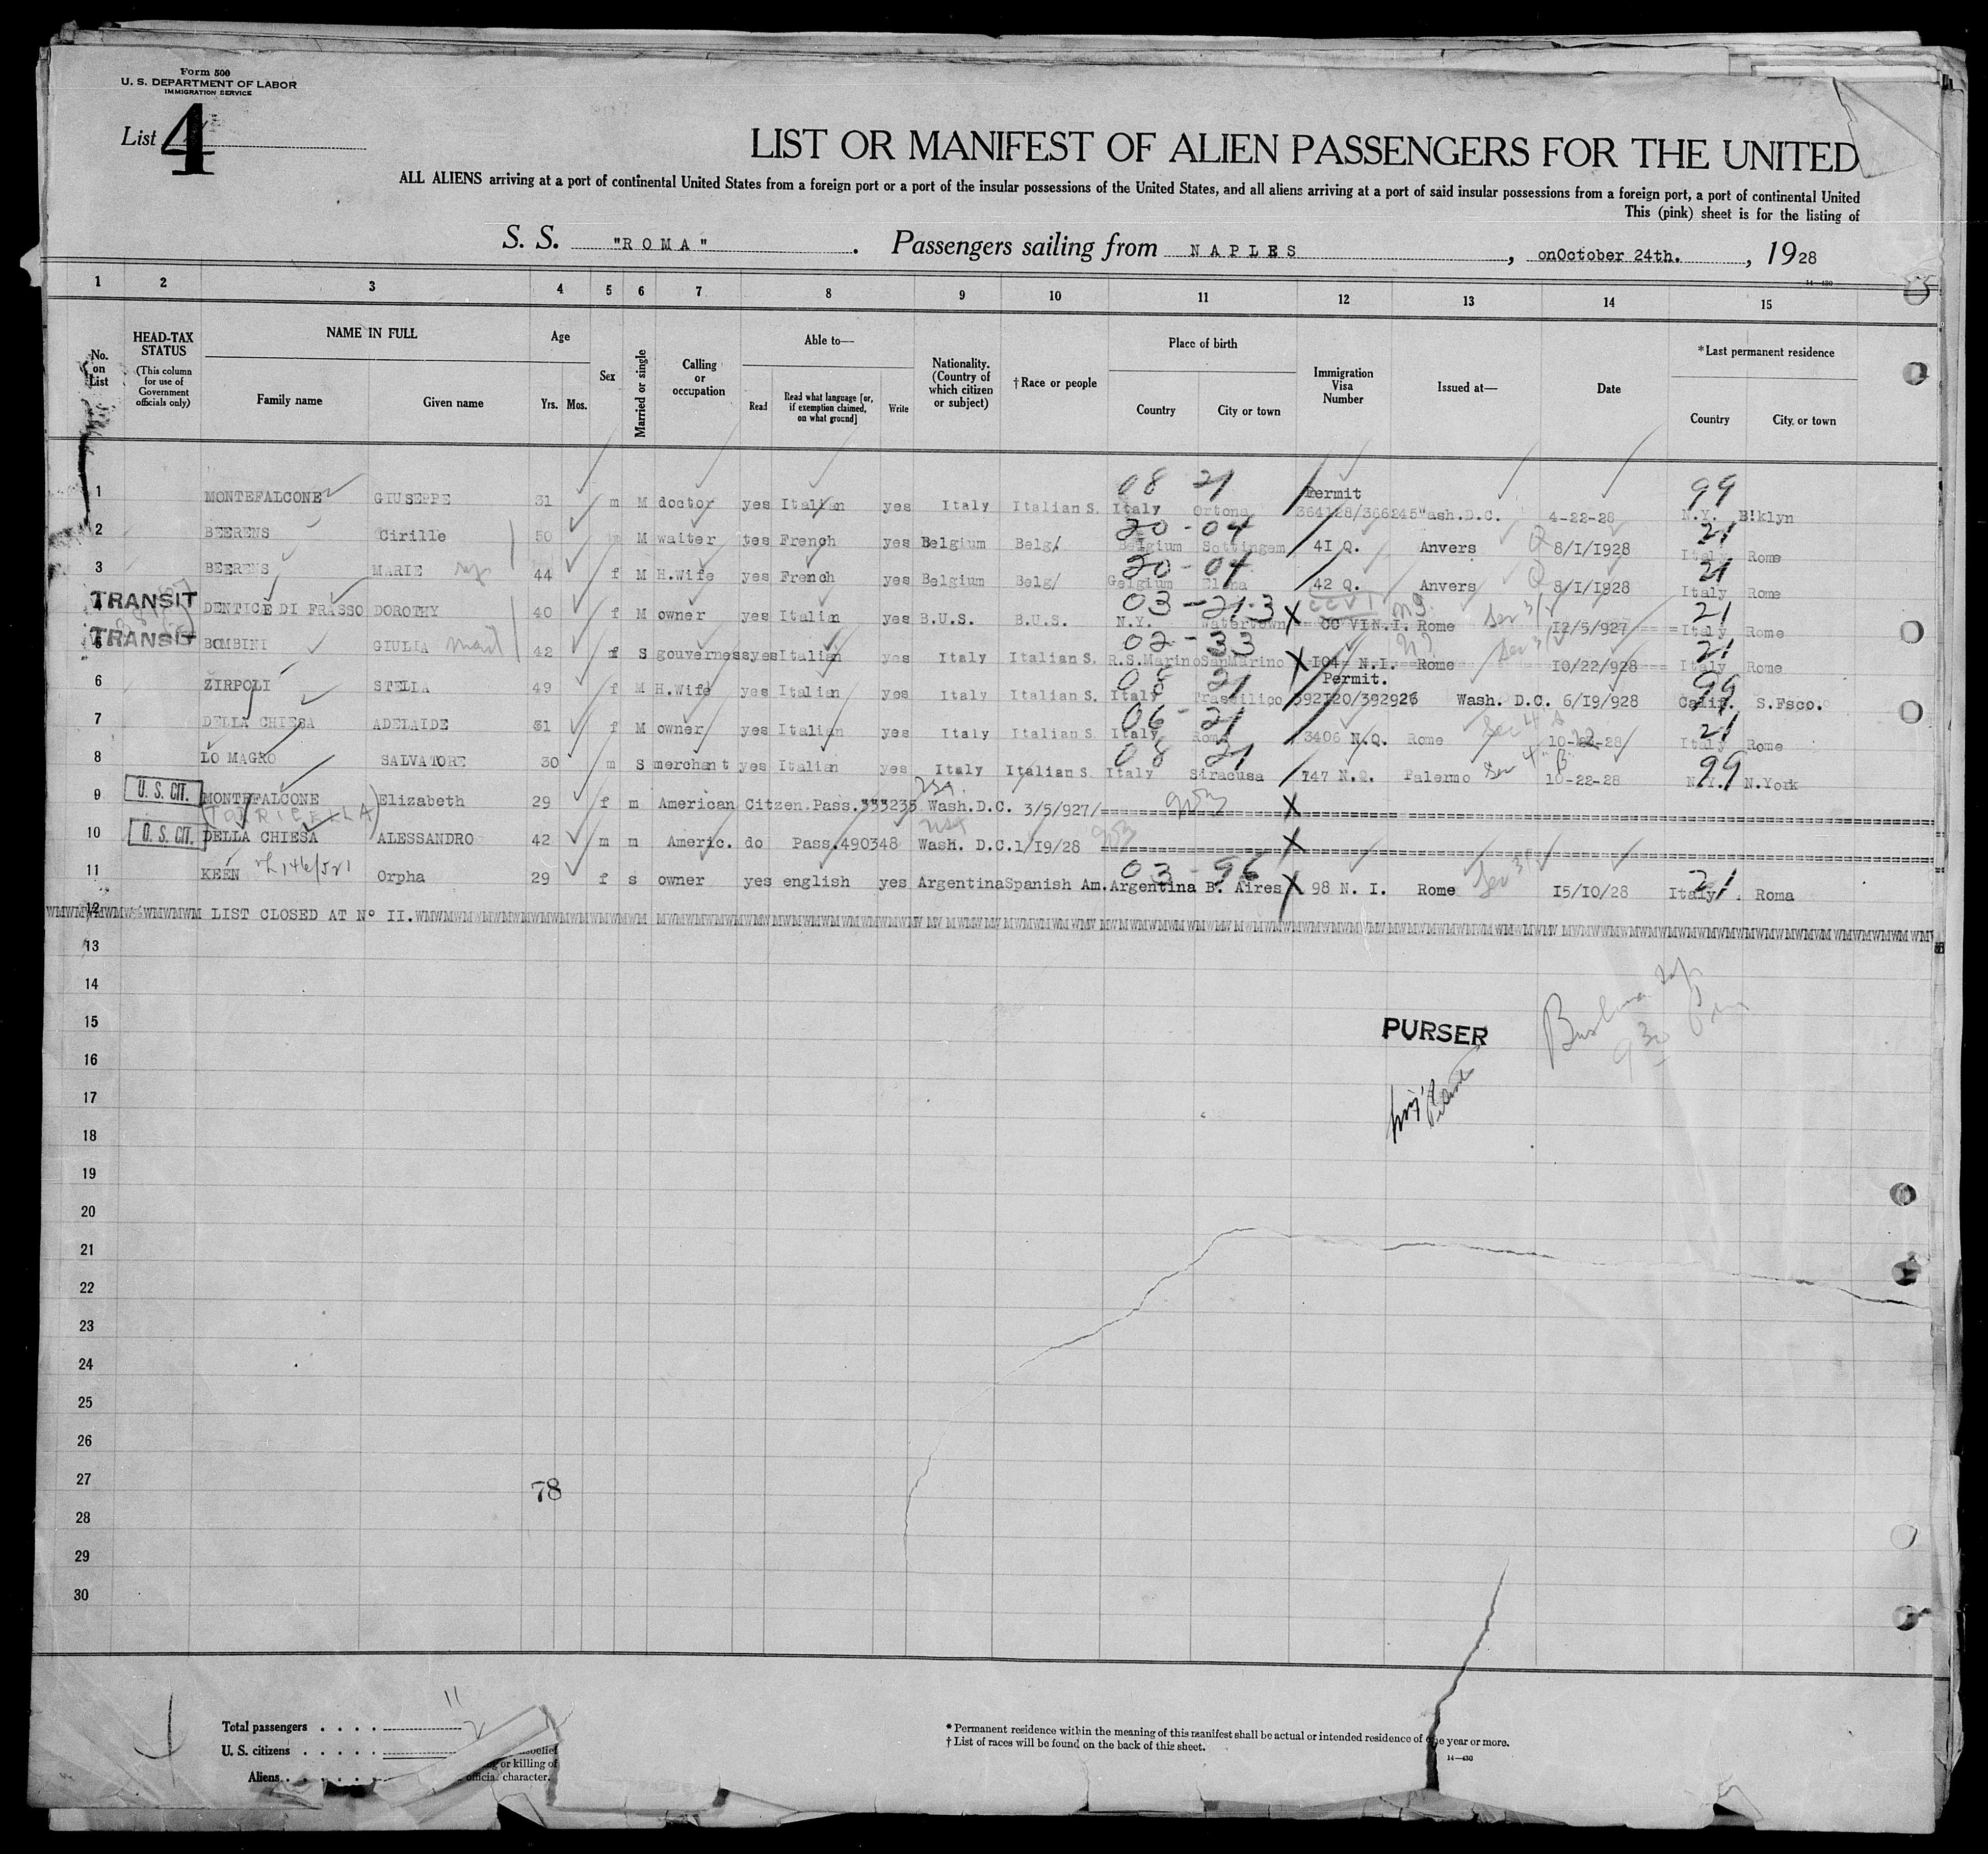 Form 500
U. S. DEPARTMENT OF LABOR
IMMIGRATION SERVICE
List 4
LIST OR MANIFEST OF ALIEN PASSENGERS FOR THE UNITED
ALL ALIENS arriving at a port of continental United States from a foreign port or a port of the insular possessions of the United States, and all aliens arriving at a port of said insular possessions from a foreign port, a port of continental United
This (pink) sheet is for the listing of
S. S. "ROMA" . Passengers sailing from NAPLES , on October 24th. , 1928
14—430
1 2 3 4 5 6 7 8 9 10 11 12 13 14 15
No. on List
HEAD-TAX STATUS (This column for use of Government officials only)
NAME IN FULL
Family name Given name
Age
Yrs. Mos.
Sex
Married or single
Calling or occupation
Able to—
Read
Read what language [or, if exemption claimed, on what ground]
Write
Nationality. (Country of which citizen or subject)
†Race or people
Place of birth
Country City or town
Immigration Visa Number
Issued at—
Date
*Last permanent residence
Country City, or town
08 21 Permit 99
1 MONTEFALCONE GIUSEPPE 31 m M doctor yes Italian yes Italy Italian S. Italy Ortona 364128/366245 "ash.D.C. 4-22-28 N.Y. B!klyn
20-04 21
2 BEERENS Cirille 50 m M waiter tes French yes Belgium Belg/ Belgium Sottingem 41 Q. Anvers 8/I/I928 Italy Rome
20-04 21
3 BEERENS MARIE 44 f M H.Wife yes French yes Belgium Belg/ Gelgium Elena 42 Q. Anvers 8/I/I928 Italy Rome
03-21-3 CCVI 21
TRANSIT DENTICE DI FRASSO DOROTHY 40 f M owner yes Italin yes B.U.S. B.U.S. N.Y. Watertown X CC VI N.I. Rome I2/5/927 Italy Rome
02-33 21
TRANSIT 5 BOMBINI GIULIA maid 42 f S gouverness yes Italian yes Italy Italian S. R.S.Marino SanMarino X IO4 N.I. Rome IO/22/928 Italy Rome
08 21 Permit. 99
6 ZIRPOLI STELLA 49 f M H.Wife yes Italian yes Italy Italian S. Italy 392I20/392926 Wash. D.C. 6/I9/928 Calif. S.Fsco.
06-21 21
7 DELLA CHIESA ADELAIDE 31 f M owner yes Italian yes Italy Italian S. Italy Roma 3406 N.Q. Rome 10- -28 Italy Rome
08 21 99
8 LO MAGRO SALVATORE 30 m S merchant yes Italian yes Italy Italian S. Italy Siracusa 747 N.Q. Palermo 10-22-28 N.Y. N.York
USA
9 U. S. CIT. MONTEFALCONE Elizabeth 29 f m American Citzen Pass.333235 Wash.D.C. 3/5/927/ X
(TORRICELLA)
USA
10 U. S. CIT. DELLA CHIESA ALESSANDRO 42 m m Americ. do Pass.490348 Wash. D.C.1/I9/28 X
03-96 21
11 KEEN Orpha 29 f s owner yes english yes Argentina Spanish Am. Argentina B. Aires X 98 N. I. Rome I5/IO/28 Italy. Roma
12 LIST CLOSED AT Nº II.
13
14
15
PURSER
16
17
18
19
20
21
22
23
24
25
26
27
78
28
29
30
Total passengers 11
U. S. citizens 2
Aliens
belief
or killing of
official character.
* Permanent residence within the meaning of this manifest shall be actual or intended residence of one year or more.
† List of races will be found on the back of this sheet.
14—430